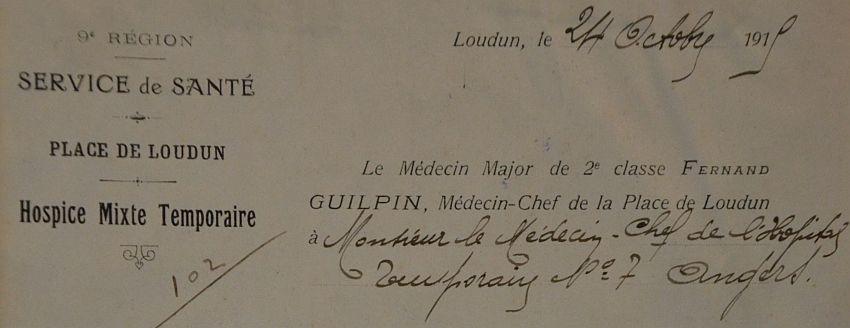 9e RÉGION
SERVICE de SANTÉ
PLACE DE LOUDUN
Hospice Mixte Temporaire
102
Loudun, le 24 Octobre 1915
Le Médecin Major de 2e classe FERNAND
GUILPIN, Médecin-Chef de la Place de Loudun
à Monsieur le Médecin-Chef de l'Hopital
Temporaire No 7 Angers.